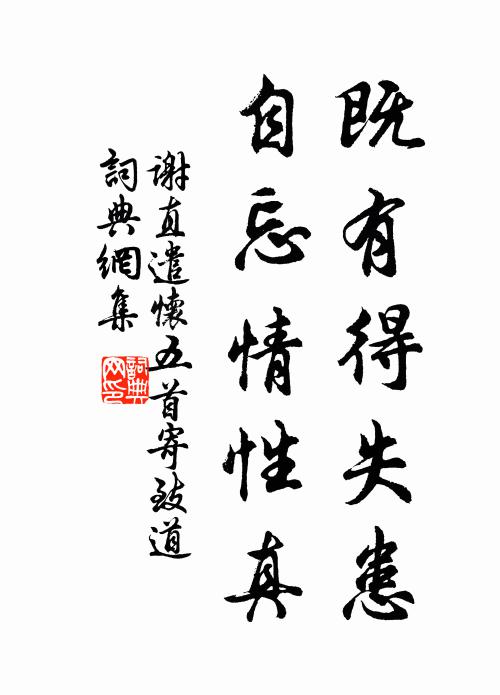 既有得失患
自忘情性真
谢直遣懷五首寄致道
詞典網集
詞典網印